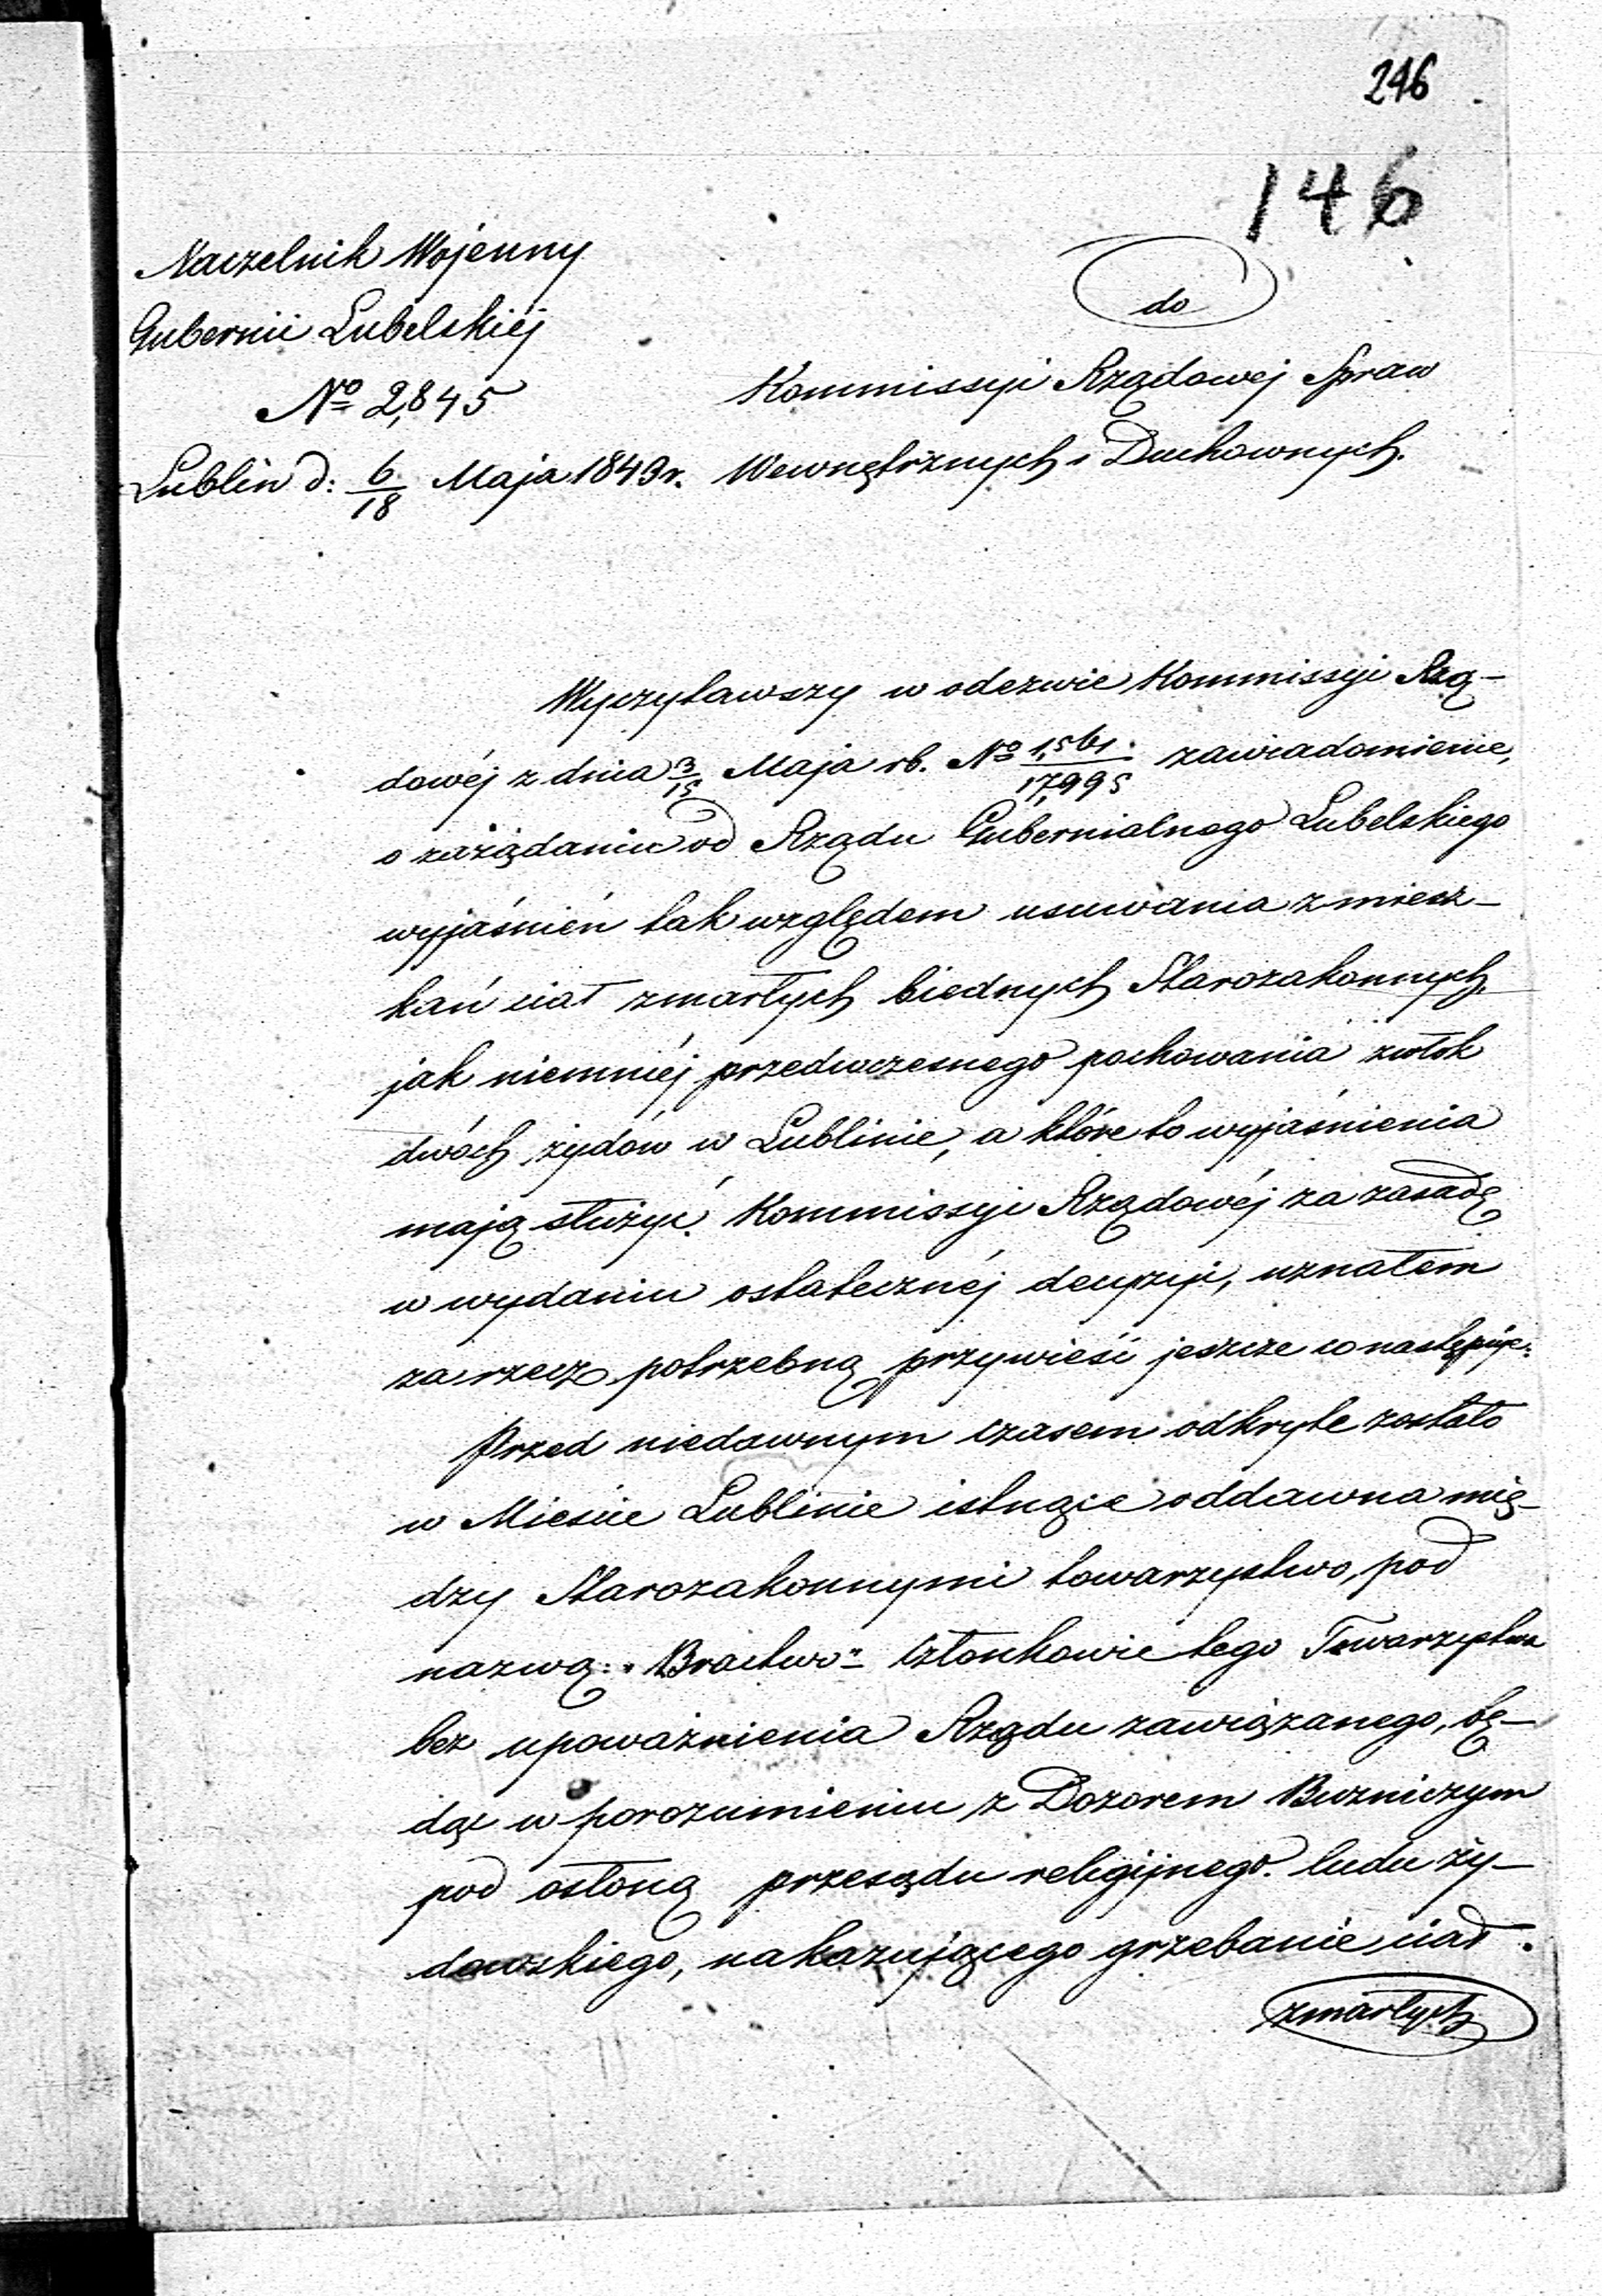 246
146
Naczelnik Wojenny
Gubernii Lubelskiéj
№ 2,845
Lublin d: 6/18 Maja 1849 r.
do
Kommissyi Rządowej Spraw
Wewnętrznych i Duchownych.
Wyczytawszy w odezwie Kommissyi Rzą-
dowéj z dnia 3/15 Maja rb. № 1,561/17,995 zawiadomienie,
o zażądaniu od Rządu Gubernialnego Lubelskiego
wyjaśnień tak względem usuwania z miesz-
kań ciał zmarłych biednych Starozakonnych,
jak niemniéj przedwczesnego pochowania zwłok
dwóch żydów w Lublinie, a które to wyjaśnienia
mają służyć Kommissyi Rządowéj za zasadę
w wydaniu ostatecznéj decyzyi, uznałem
za rzecz potrzebną przywieść jeszcze co następuje:
Przed niedawnym czasem odkryte zostało
w Mieście Lublinie istnące oddawna mię-
dzy Starozakonnymi towarzystwo, pod
nazwą: „Bractwo" – Członkowie tego Towarzystwa
bez upoważnienia Rządu zawiązanego, bę-
dąc w porozumieniu z Dozorem Bużniczym
pod osłoną przesądu religijnego ludu ży-
dowskiego, nakazującego grzebanie ciał
zmarłych